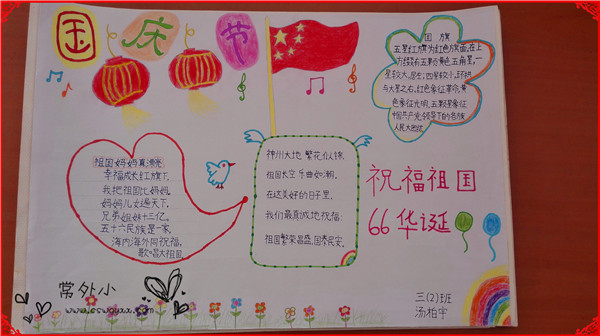 国庆节
国旗
五星红旗为红色旗面,在上
方缀有五颗黄色五角星,一
星较大,居左;四星较小,环拱
与大星之右,红色象征革命,黄
色象征光明,五颗星象征
中国共产党领导下的各族
人民大团结
祖国妈妈真漂亮
幸福成长红旗下,
我把祖国比妈妈。
妈妈儿女遍天下,
兄弟姐妹十三亿。
五十六民族是一家,
海内海外同祝福,
歌唱大祖国
神州大地 繁花似锦
祖国长空 乐曲如潮。
在这美好的日子里,
我们最真诚地祝福:
祖国繁荣昌盛,国泰民安。
祝福祖国
66华诞
常外小
三(2)班
汤柏宇